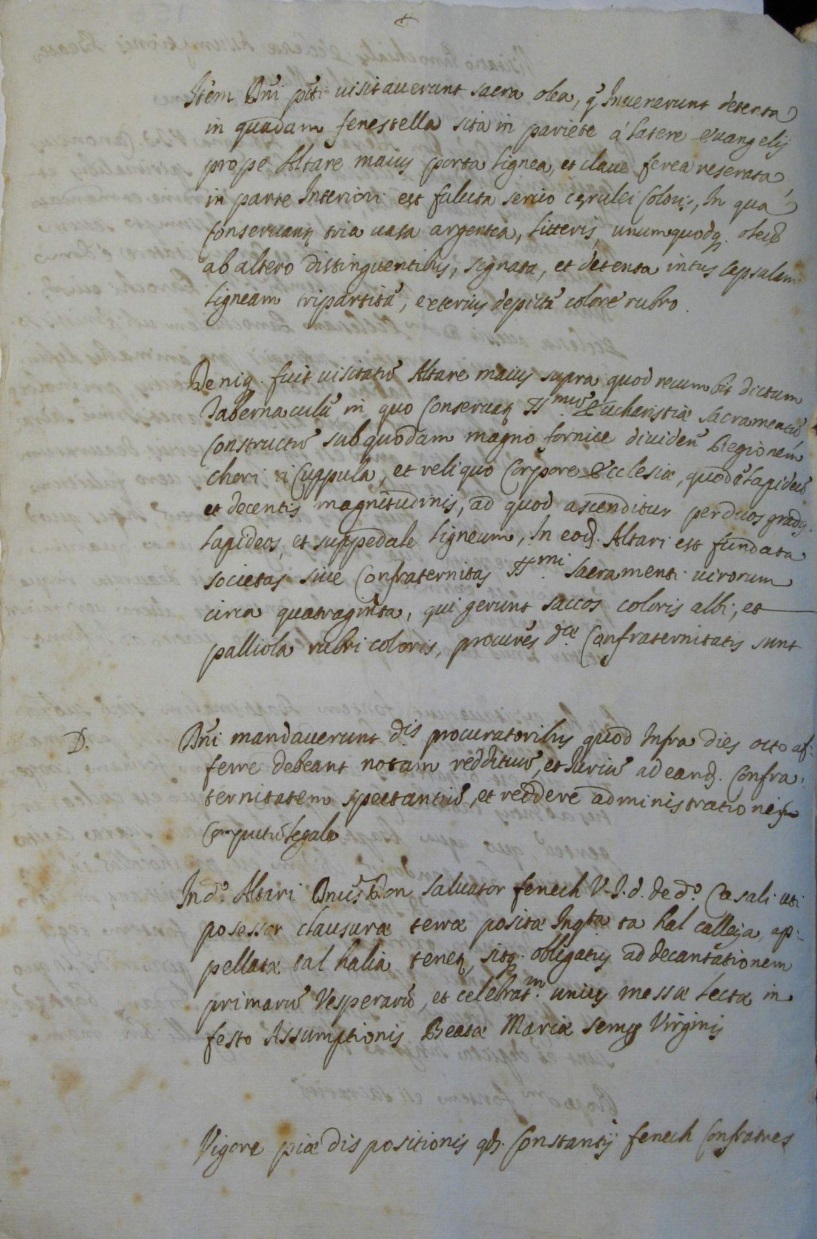 Item Dni pti visitaverunt sacra olea, q Invenerunt detenta
in quadam fenestella sita in pariete a latere evangelij
prope Altare maius porta lignea, et clave ferea reserata
in parte Interiori est fulcita serico cęrulei Coloris, In qua
Conservant tria vasa argentea, litteris, unumquodq. oleũ
ab altero distinguentibus, signata, et detenta intus Capsulam
ligneam tripartitã, exterius depictã colore rubro.
Deniq. fuit visitatũ Altare maius supra quod recumbit dictum
Tabernaculũ in quo Conservat SSmũ Eucharistiæ Sacramentũ
Constructũ sub quodam magno fornice dividen Regionem
chori Cuppula, et reliquo Corpore Ecclesiæ, lapideũ
et decentis magnitudinis, ad quod ascenditur per duos gradus
lapideos, et suppedale ligneum, In eod. Altari est fundata
societas sive Confraternitas SSmi Sacramenti virorum
circa quatraginta, qui gerunt saccos coloris albi, et
palliola rubri coloris, procures dæ Confraternitatis sunt
D. Dni mandaverunt dis procuratoribus quod Infra dies octo af:
ferre debeant notam reddituũ, et Iuriũ ad eand. Confra:
ternitatem spectantiũ, et reddere administrationem
Computũ legale
In do. Altari Don Salvator fenech V.I.d. de do. Casali uti
posessor clausuræ terræ positæ In ta hal calleja, ap:
pellatæ tal halia tenet, sitq. obligatus ad decantationem
primarũ Vesperarũ, et celebratm. unius messæ lectæ in
festo Assumptionis Beatæ Mariæ semp Virginis
Vigore piæ dispositionis qd. Constantij fenech Confratres